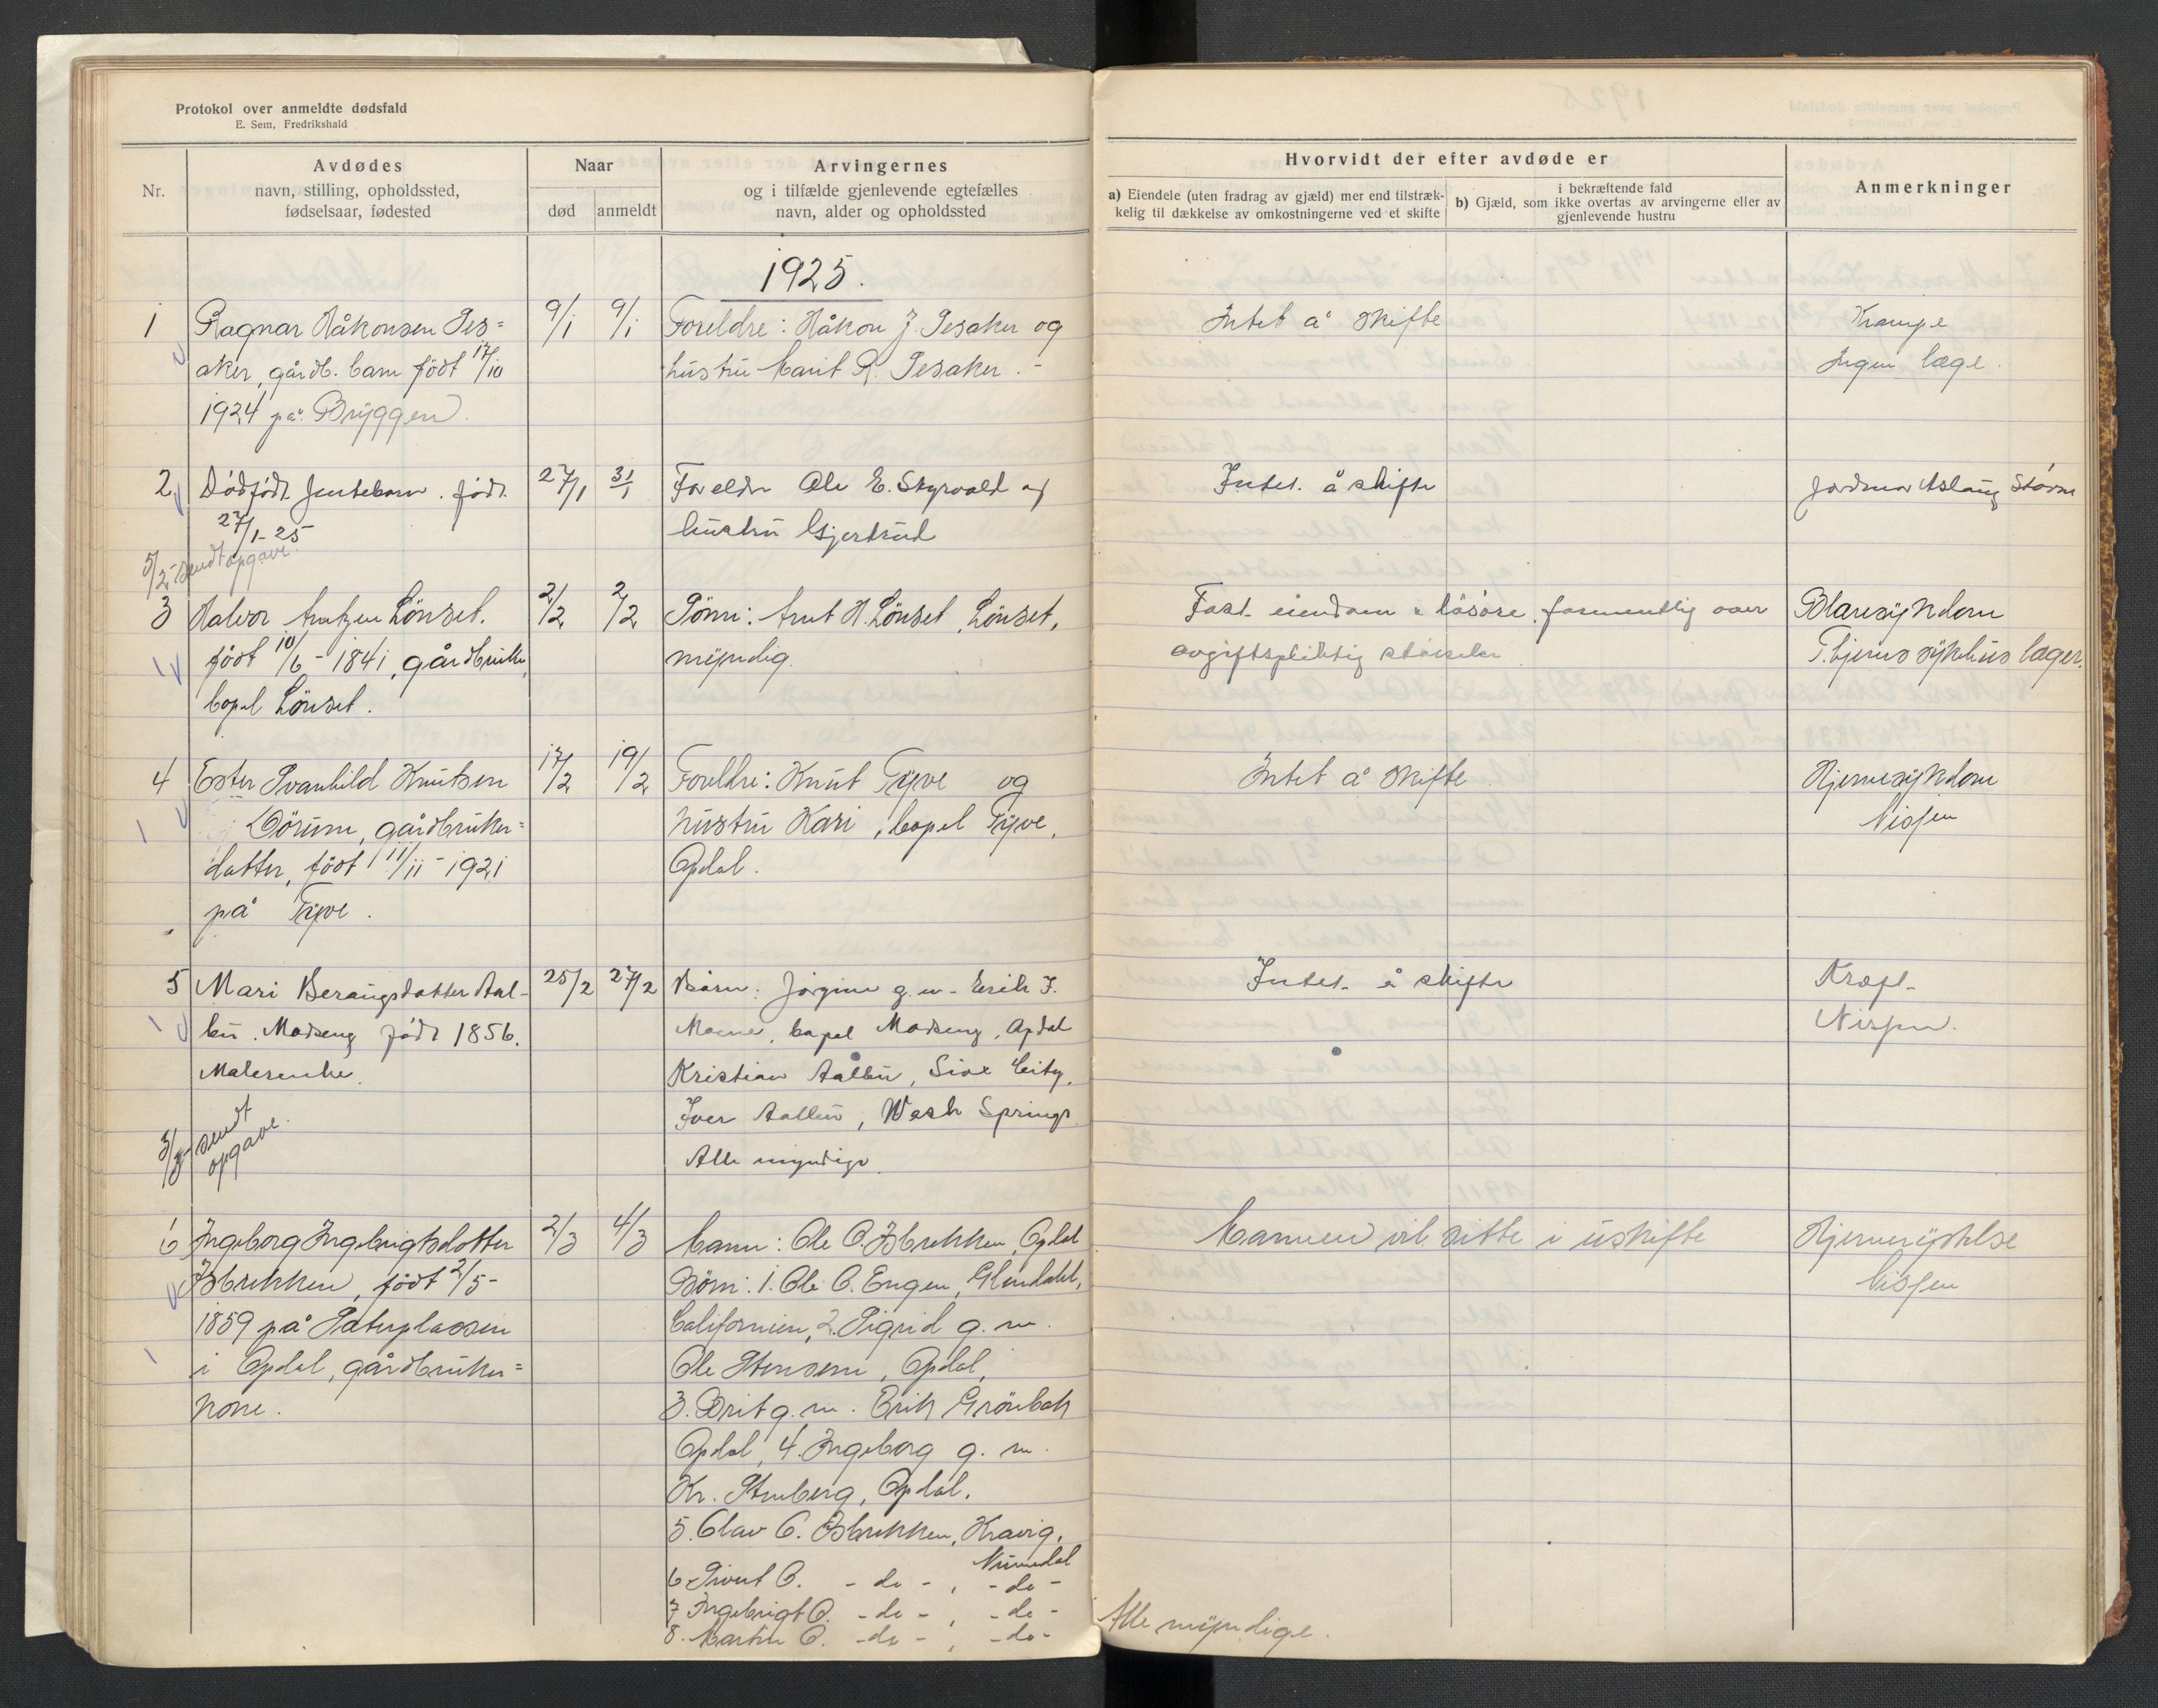 Protokol over anmeldte dødsfald
E. Sem, Fredrikshald
Nr.
Avdødes
navn, stilling, opholdssted,
fødselsaar, fødested
Naar
død
anmeldt
Arvingernes
og i tilfælde gjenlevende egtefælles
navn, alder og opholdssted
Hvorvidt der efter avdøde er
a) Eiendele (uten fradrag av gjæld) mer end tilstræk-
kelig til dækkelse av omkostningerne ved et skifte
i bekræftende fald
b) Gjæld, som ikke overtas av arvingerne eller av
gjenlevende hustru
Anmerkninger
1925.
1
Ragnar Håkonsen Ses=
aker, gårdb. barn født 17/10
1924 på Bryggen.
9/1
9/1
Foreldre: Håkon J. Sesaker og
hustru Marit R. Sesaker. -
Intet å skifte
Krampe
Ingen læge.
2
Dødfødt Jentebarn. født
27/1-25
27/1
31/1
Foreldre Ole E. Skyrvold og
hustru Gjertrud
Intet å skifte
Jordmor Aslaug Stören
5/2 sendt opgave.
3
Halvor Arntzen Lönset.
født 10/6 - 1841, gårdbruker,
bopel Lönset.
2/2
2/2
Sönn: Arnt H. Lönset, Lönset,
myndig.
Fast eiendom & lösöre, formentlig over
avgiftspliktig störrelse
Blæresykdom
T.hjems sykehus læger.
4
Ester Svanhild Knutsen
Dörum, gårdbruker=
datter, født 11/11 - 1921
på Tyve.
17/2
19/2
Foreldre: Knut Tyve og
hustru Kari, bopel Tyve,
Opdal.
Intet å skifte
Hjernesykdom
Nissen
5
Mari Beraugsdatter Aal-
bu. Modseng født 1856.
25/2
27/2
Børn: Jörgine g.m. Erik J.
Moene, bopel Modseng, Opdal
Kristian Aalbu, Siox City,
Iver Aalbu, Wesh Springs.
Alle myndige.
Intet å skifte
Kræft
Nissen.
3/3 sendt
opgave.
6
Ingeborg Ingebrigtsdatter
Isbrekken, født 2/5-
1859 på Sæterplassen
i Opdal, gårdbruker=
kone.
2/3
4/3
Mann: Ole O. Isbrekken, Opdal
Børn: 1. Ole O. Engen, Glendahl,
Californien, 2. Sigrid g. m.
Ole Stensem, Opdal,
3. Brit g. m. Erik Grönbak
Opdal, 4. Ingeborg g. m.
Kr. Stenberg, Opdal.
5. Olav O. Isbrekken, Kravig,
Numedal
6 Sivert O. - do - , - do -
7 Ingebrigt O. - do - , - do -
8. Martin O. - do - , - do -
Alle myndige.
Mannen vil sitte i uskifte
Hjernerystelse
Nissen